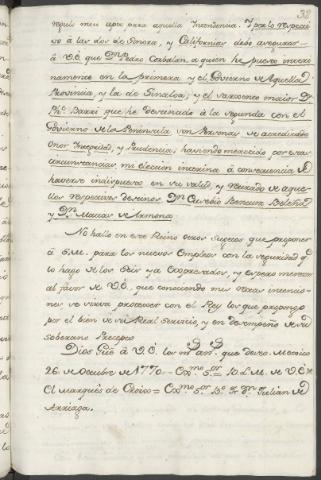 apto para aquella Yntendencia. Y por lo respecti-
vo à las dos de Sonora, y Californias debo asegurar
à V.E. que Dn. Pedro Corbalàn, à quien he puesto interi-
namente en la primera, y el Govierno de Aquella
Provincia, y la de Sinaloa; y el sargento maior Dn.
Phe. Barri que he destinado à la segunda con el
Govierno de la Peninsula son Personas de acreditado
Onor Integridad, y Prudencia, haviendo merecido por estas
circunstancias mi eleccion interina à consequencia de
haverse indispuesto en su salud, y retirado de aque-
llos respectivos destinos Dn. Eusebio Ventura Beleña
y Dn. Matias de Armona.
No hallo en este Reino otros Sugetos que proponer
à S.M. para los nuevos Empleos con la seguridad qe.
lo hago de los Seis ya Expresados, y espero merecer
al favor de V.E. que conociendo mis rectas intencio-
nes se sirva protexer con el Rey los que propongo
por el bien de su Real servicio, y en desempeño de su
soberano Precepto.
Dios Gue. à V.E. los ms. ans. que deseo. Mexico
26 de Octubre de 1770 = Exmo. Sor. = B. L. M. de V.E. =
El Marques de Croix = Exmo. Sor. Bo. Fr. Dn. Julian de
Arriaga.